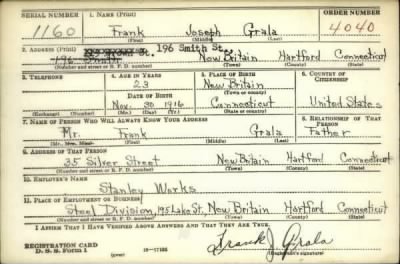 SERIAL NUMBER 1. NAME (Print) ORDER NUMBER
1160 Frank Joseph Grala 4040
(First) (Middle) (Last)
2. ADDRESS (Print) 196 Smith St.
New Britain Hartford Connecticut
(Number and street or R. F. D. number) (Town) (County) (State)
3. TELEPHONE 4. AGE IN YEARS 5. PLACE OF BIRTH 6. COUNTRY OF CITIZENSHIP
23 New Britain
DATE OF BIRTH (Town or county)
Nov. 30 1916 Connecticut United States
(Exchange) (Number) (Mo.) (Day) (Yr.) (State or country)
7. NAME OF PERSON WHO WILL ALWAYS KNOW YOUR ADDRESS 8. RELATIONSHIP OF THAT PERSON
Mr. Frank Grala Father
(Mr., Mrs., Miss) (First) (Middle) (Last)
9. ADDRESS OF THAT PERSON
35 Silver Street New Britain Hartford Connecticut
(Number and street or R. F. D. number) (Town) (County) (State)
10. EMPLOYER'S NAME
Stanley Works
11. PLACE OF EMPLOYMENT OR BUSINESS
Steel Division, 195 Lake St., New Britain Hartford Connecticut
(Number and street or R. F. D. number) (Town) (County) (State)
I AFFIRM THAT I HAVE VERIFIED ABOVE ANSWERS AND THAT THEY ARE TRUE.
REGISTRATION CARD
D. S. S. Form 1 (over) 16—17105 Frank J. Grala
(Registrant's signature)